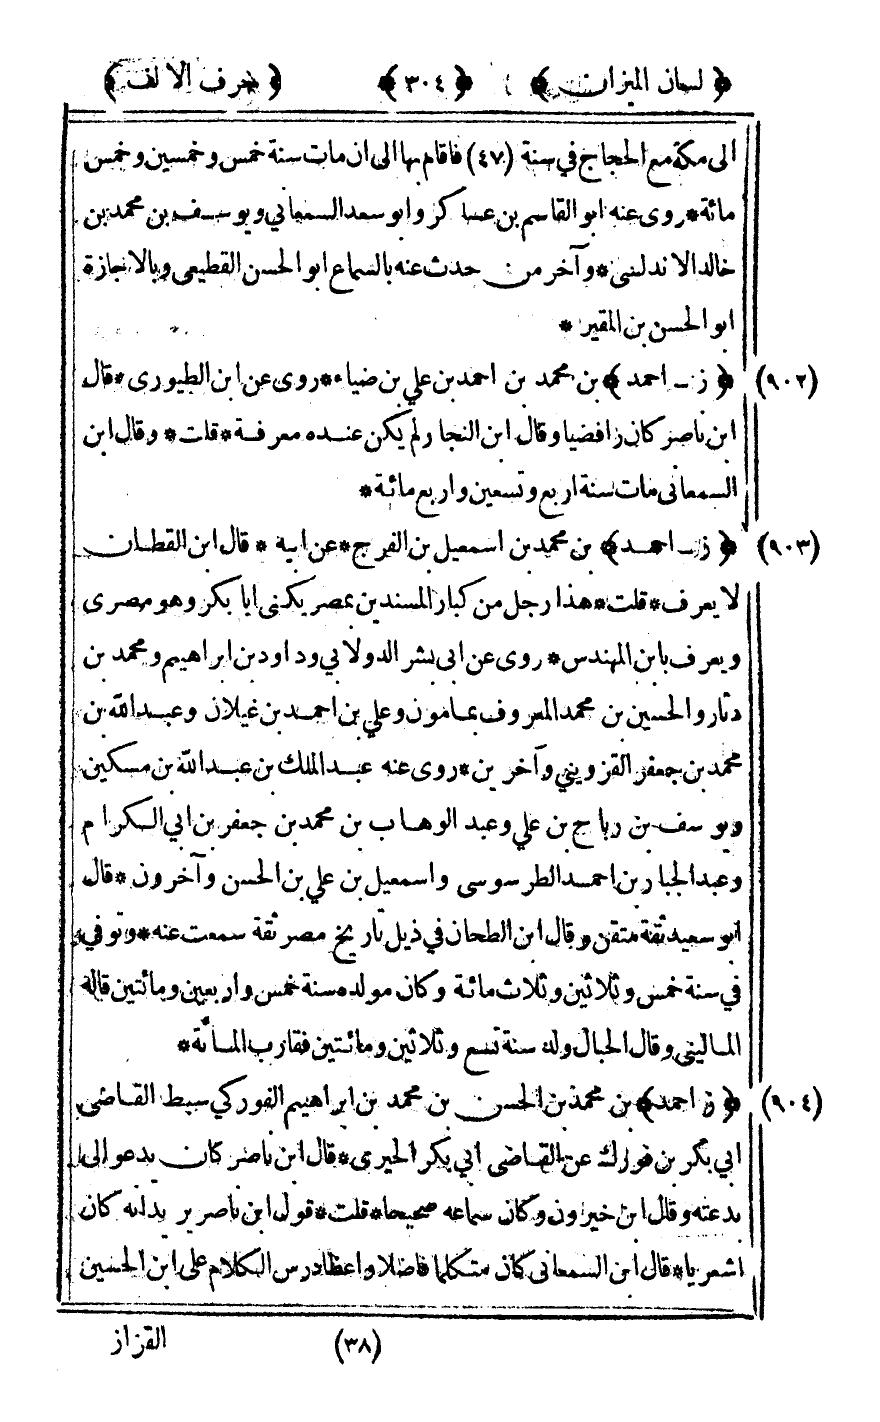 ﴿ لسان الميزان ﴾ ﴿ ٣٠٤ ﴾ ﴿ حرف الالف ﴾
الى مكة مع الحجاج في سنة (٤٧) فاقام بها الى ان مات سنة خمس وخمسين وخمس
مائة * روى عنه ابو القاسم بن عساكر وابو سعد السمعاني ويوسف بن محمد بن
خالد الاندلسي * وآخر من حدث عنه بالسماع ابو الحسن القطيعي وبالاجازة
ابو الحسن بن المقير *
(٩٠٢) ﴿ ز ـ احمد ﴾ بن محمد بن احمد بن علي بن ضياء * روى عن ابن الطيورى * قال
ابن ناصر كان رافضيا وقال ابن النجار لم يكن عنده معرفة * قلت * وقال ابن
السمعانى مات سنة اربع وتسعين واربع مائة *
(٩٠٣) ﴿ ز ـ احمد ﴾ بن محمد بن اسمعيل بن الفرج * عن ابيه * قال ابن القطان
لا يعرف * قلت * هذا رجل من كبار المسندين بمصر يكنى ابا بكر وهو مصرى
ويعرف بابن المهندس * روى عن ابى بشر الدولابي وداود بن ابراهيم ومحمد بن
دثار والحسين بن محمد المعروف بمامون وعلي بن احمد بن غيلان وعبد الله بن
محمد بن جعفر القزويني وآخرين * روى عنه عبد الملك بن عبد الله بن مسكين
ويوسف بن رباح بن علي وعبد الوهاب بن محمد بن جعفر بن ابي الكرام
وعبد الجبار بن احمد الطرسوسى واسمعيل بن علي بن الحسن وآخرون * قال
ابو سعيد ثقة متقن وقال ابن الطحان في ذيل تاريخ مصر ثقة سمعت عنه * وتوفي
في سنة خمس وثلاثين وثلاث مائة وكان مولده سنة خمس واربعين ومائتين قاله
الماليني وقال الحبال ولد سنة تسع وثلاثين ومائتين فقارب المائة *
(٩٠٤) ﴿ ز احمد ﴾ بن محمد بن الحسن بن محمد بن ابراهيم الفوركي سبط القاضى
ابي بكر بن فورك عن القاضى ابي بكر الحيرى * قال ابن ناصر كان يدعو الى
بدعته وقال ابن خيرون وكان سماعه صحيحا * قلت * قول ابن ناصر يريد انه كان
اشعريا * قال ابن السمعانى كان متكلما فاضلا واعظا درس الكلام على ابن الحسين
(٣٨) القزاز